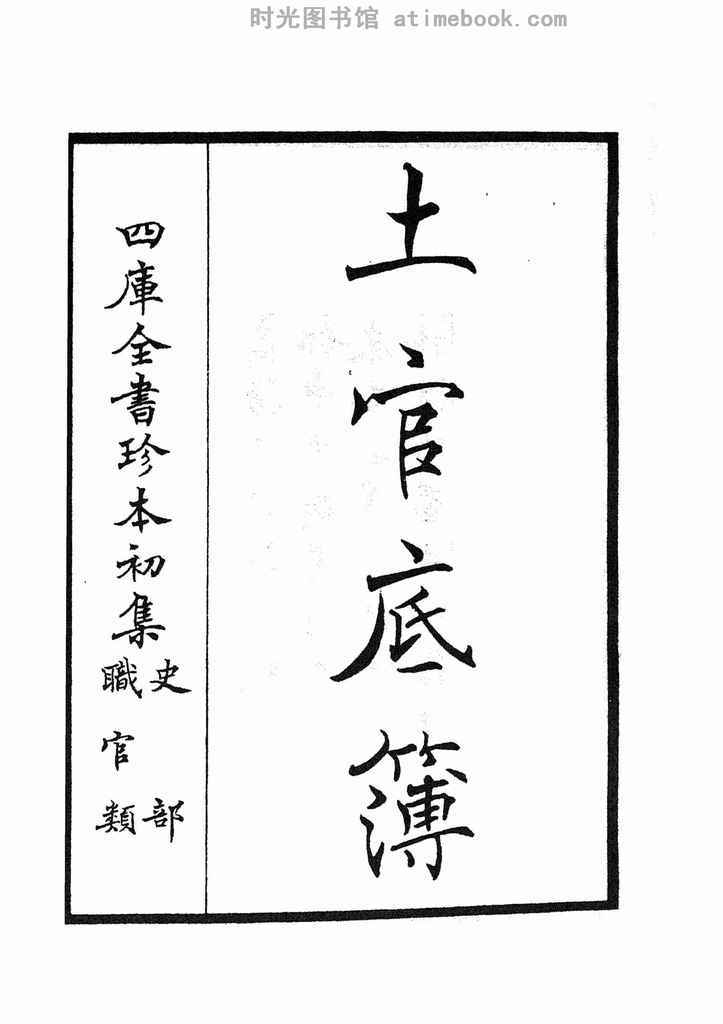 时光图书馆 atimebook.com
土官底簿
四庫全書珍本初集
史部
職官類